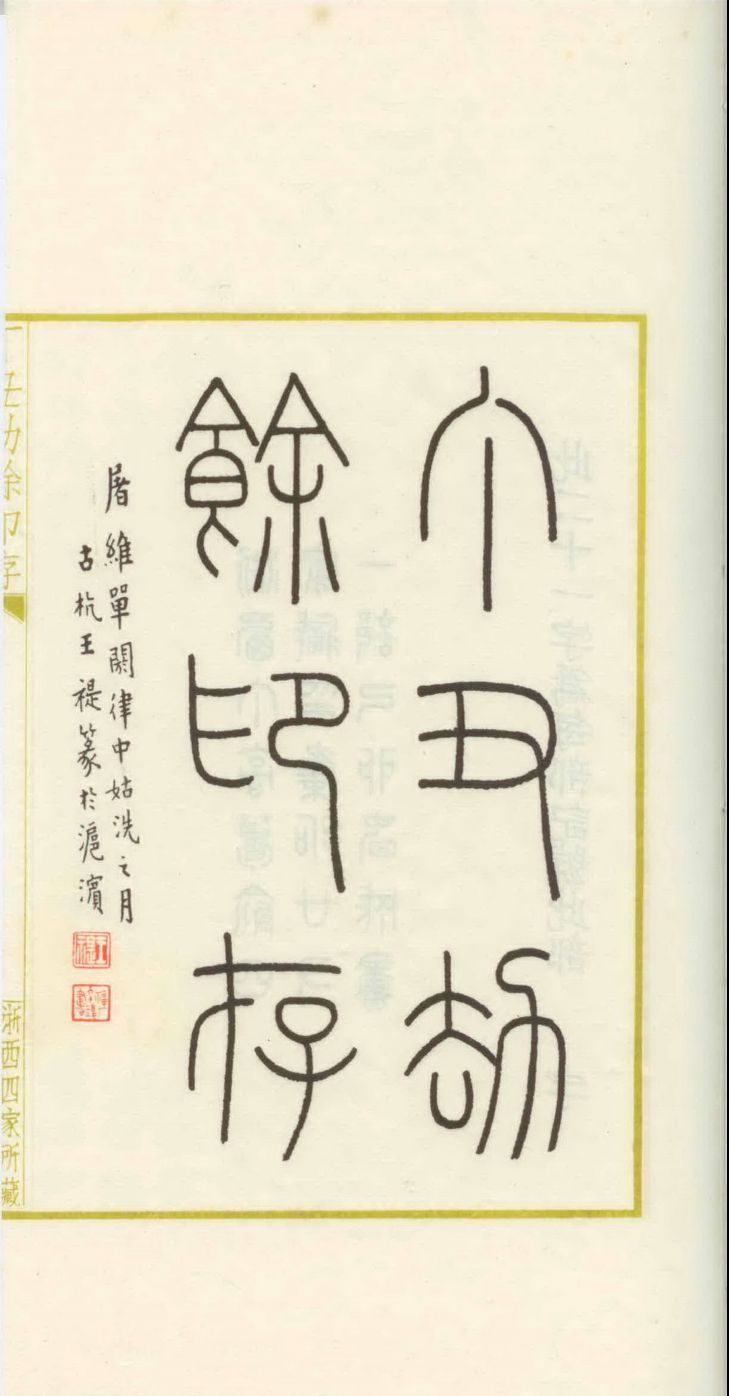 丁丑劫
餘印存
屠維單閼律中姑洗之月
古杭王禔篆於滬濱
王禔
丁丑劫餘印存
浙西四家所藏